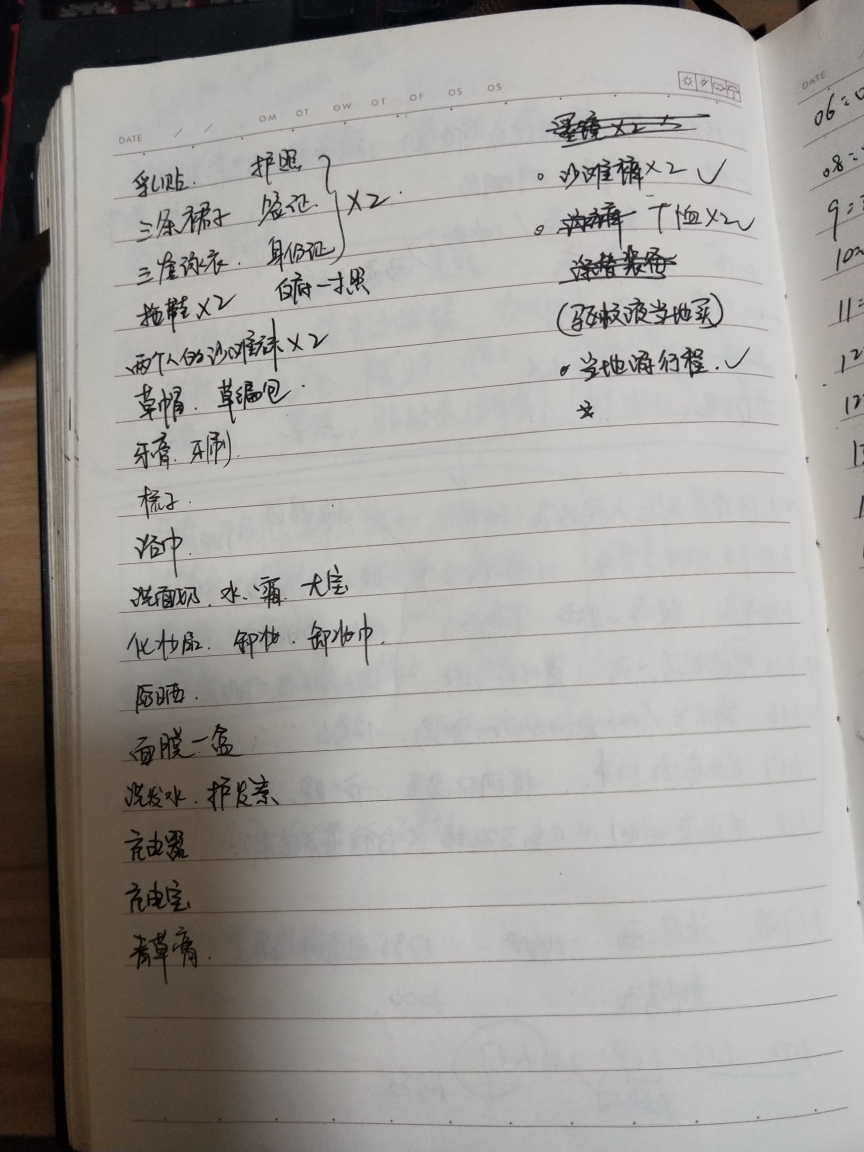 DATE / /
OM OT OW OT OF OS OS
乳贴. 护照
三条裙子 签证 } ×2.
三套泳衣. 身份证
拖鞋×2 白底一寸照
两个人的沙滩袜×2
草帽. 草编包.
牙膏. 牙刷.
梳子.
浴巾.
洗面奶. 水. 霜. 大宝
化妆品. 卸妆. 卸妆巾.
防晒.
面膜一盒
洗发水. 护发素
充电器
充电宝
青草膏.
墨镜×2
沙滩裤×2 ✓
T恤×2 ✓
(驱蚊液当地买)
当地游行程. ✓
DATE
06:0
08:
9:
10:
11:
12
12